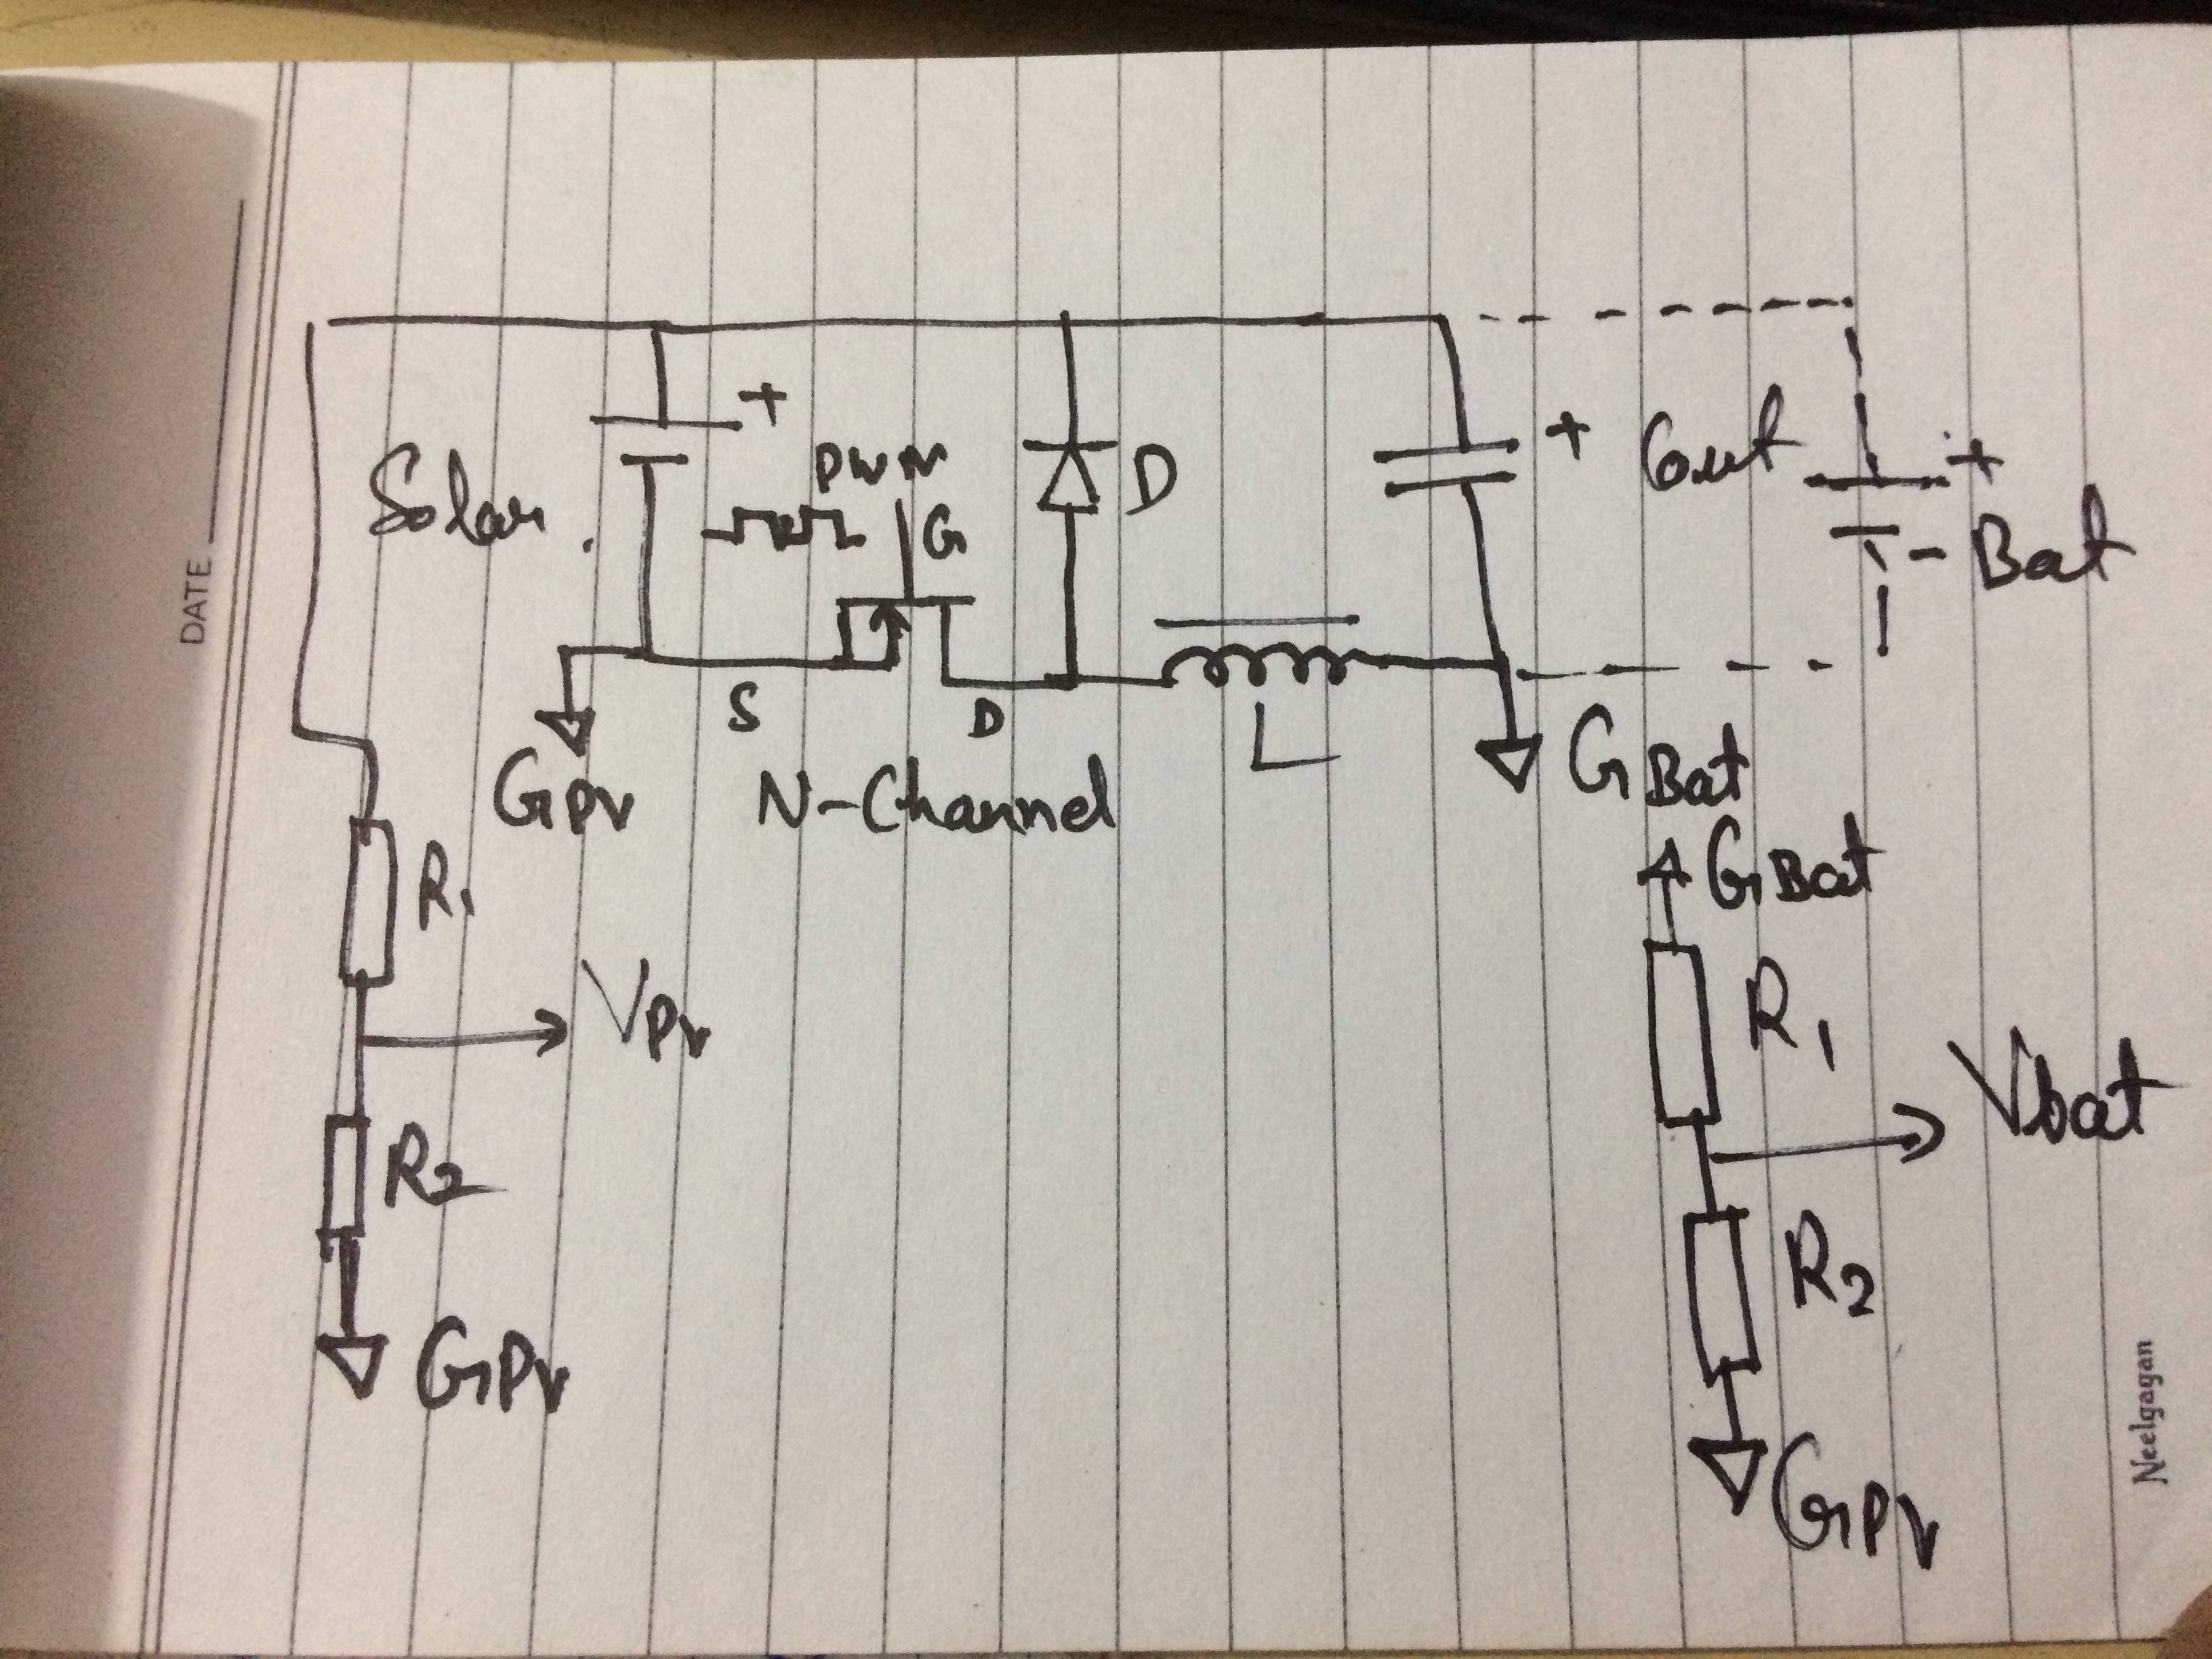 DATE
+
Solar
PWM
G
D
+
Cout
+
- Bat
S
D
L
GPV
N-Channel
GBat
GBat
R1
VPV
R1
Vbat
R2
R2
GPV
GPV
Neelgagan